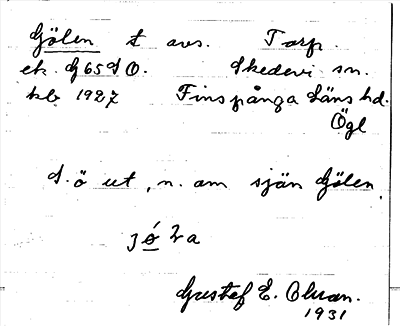 Gölen t avs. Torp.
ek. G65SO. Skedevi sn.
kb 1927 Finspånga Läns hd.
Ögl
S.ö ut, n. om sjön Gölen.
Gustaf E. Olsson.
1931